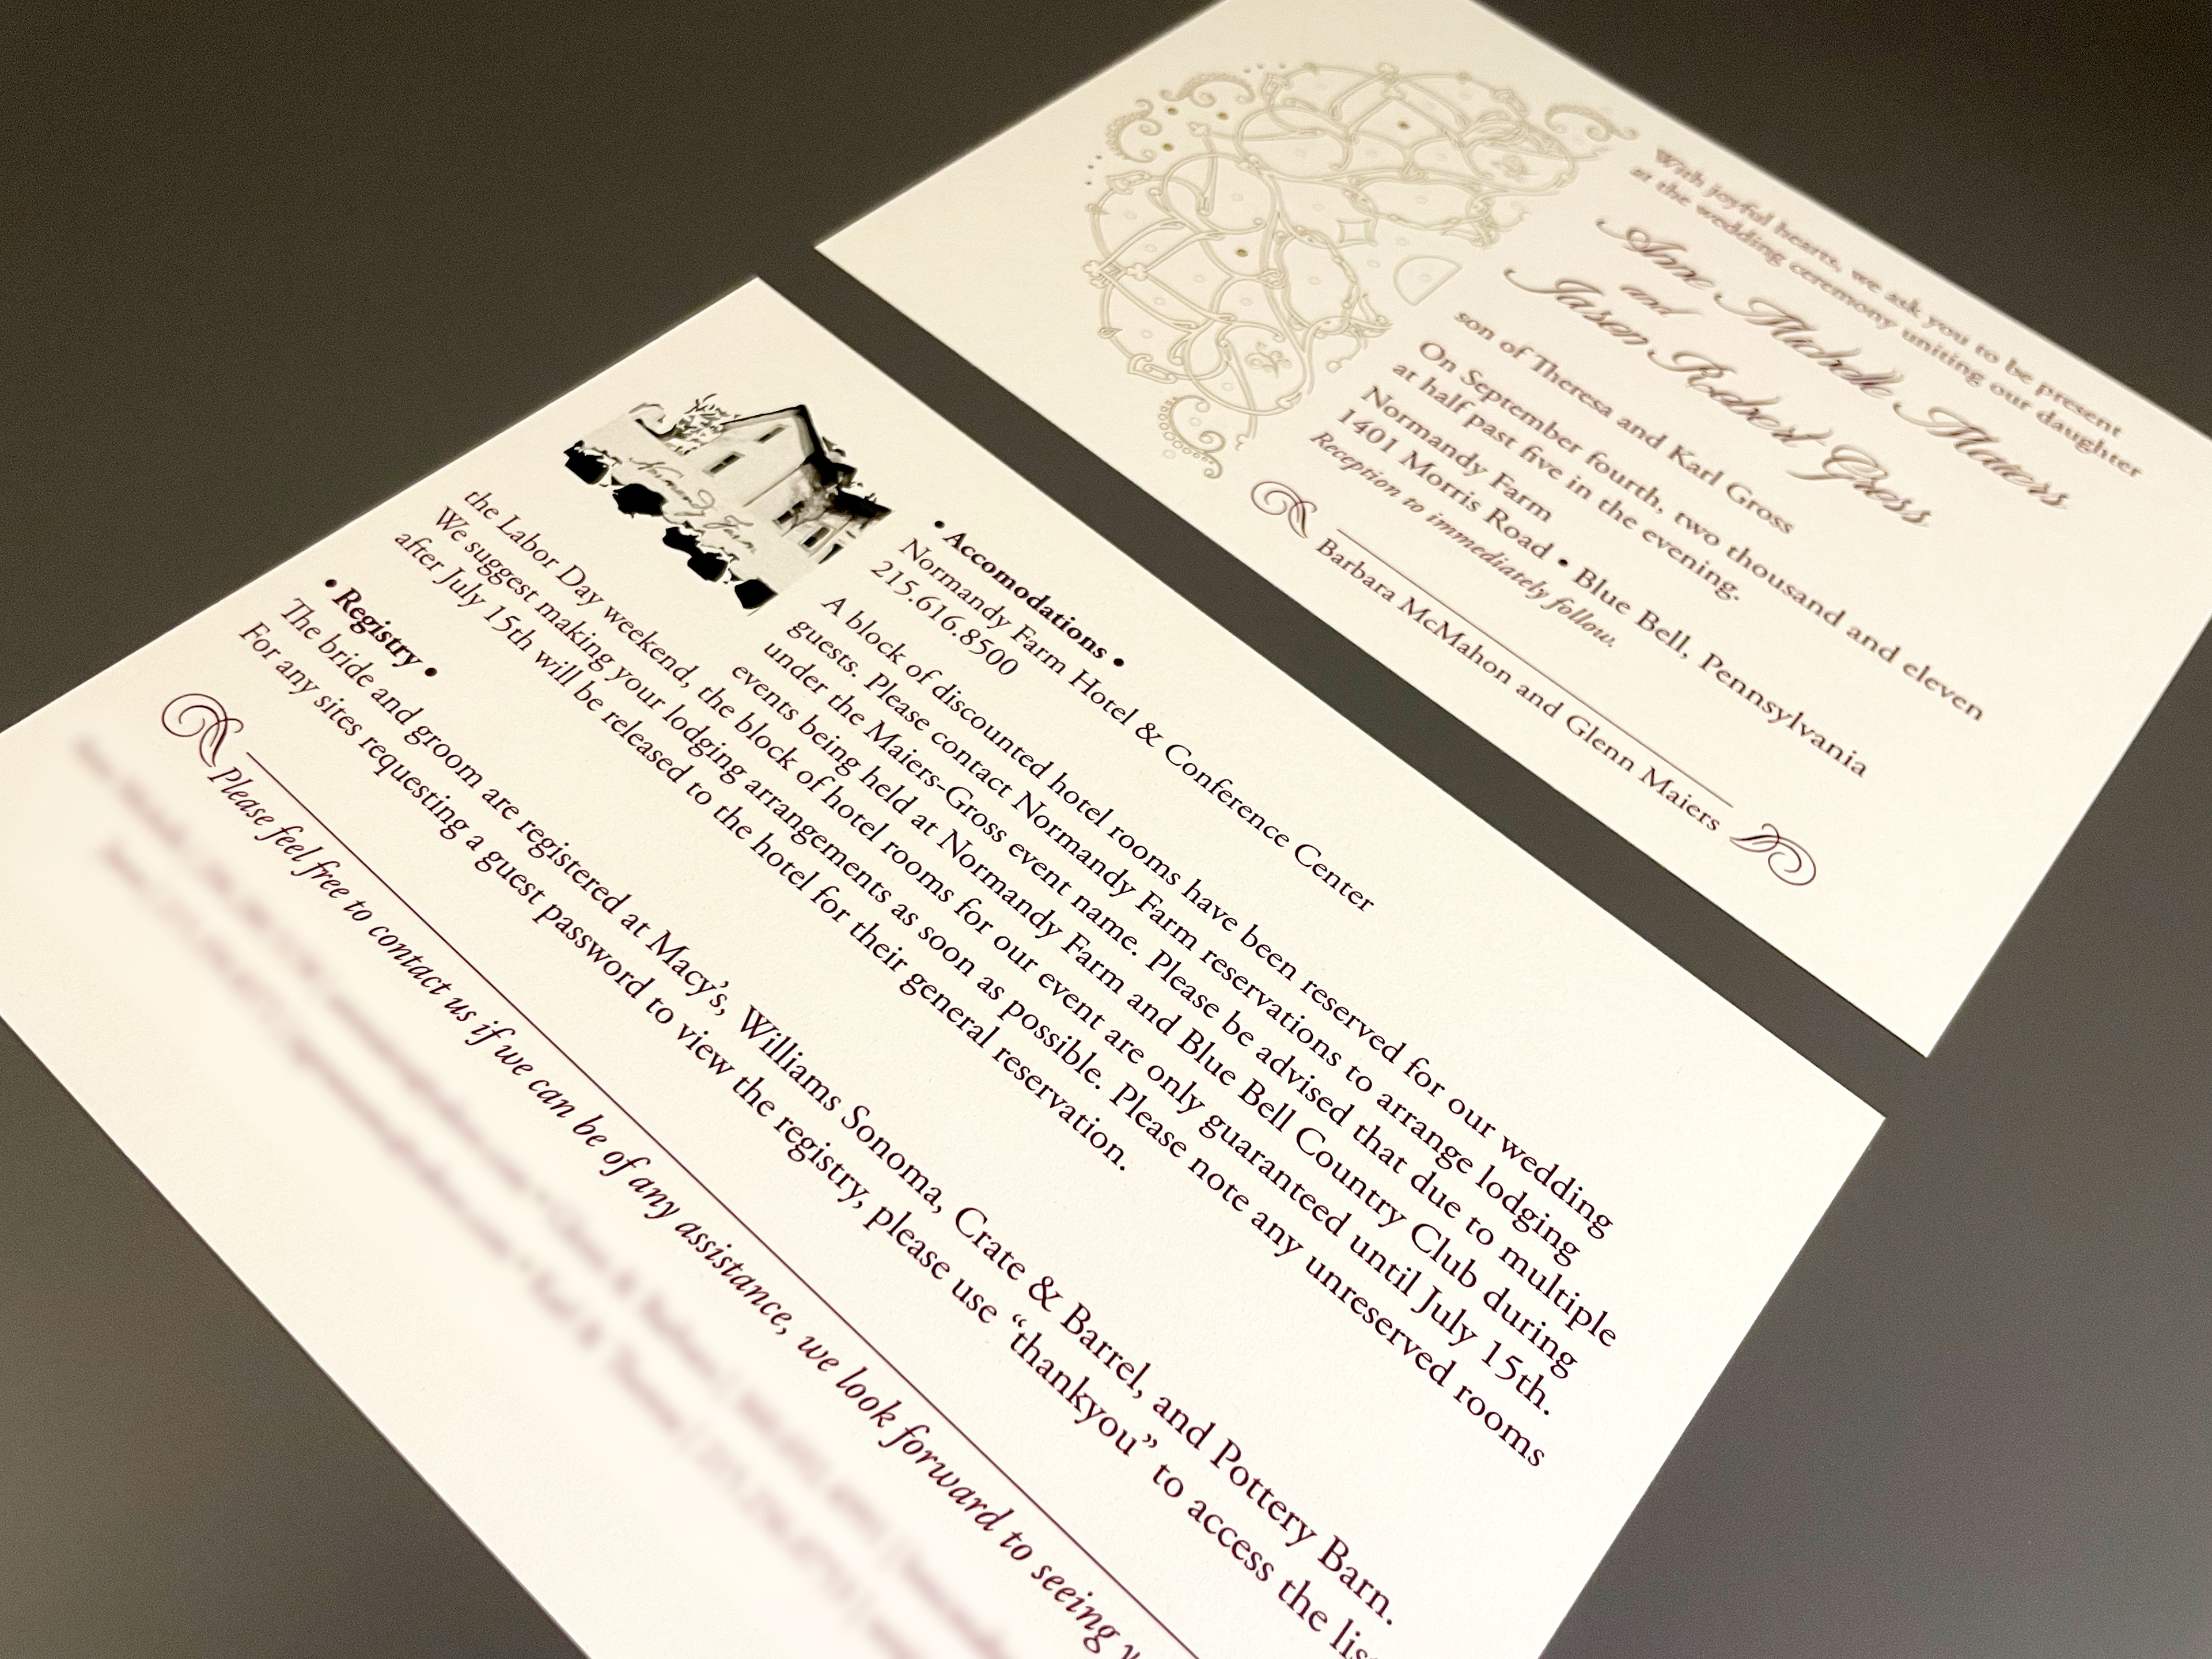 With joyful hearts, we ask you to be present
at the wedding ceremony uniting our daughter
Anne Michelle Maiers
and
Jason Robert Gross
son of Theresa and Karl Gross
On September fourth, two thousand and eleven
at half past five in the evening.
Normandy Farm
1401 Morris Road • Blue Bell, Pennsylvania
Reception to immediately follow.
Barbara McMahon and Glenn Maiers
Normandy Farm
• Accomodations •
Normandy Farm Hotel & Conference Center
215.616.8500
A block of discounted hotel rooms have been reserved for our wedding
guests. Please contact Normandy Farm reservations to arrange lodging
under the Maiers-Gross event name. Please be advised that due to multiple
events being held at Normandy Farm and Blue Bell Country Club during
the Labor Day weekend, the block of hotel rooms for our event are only guaranteed until July 15th.
We suggest making your lodging arrangements as soon as possible. Please note any unreserved rooms
after July 15th will be released to the hotel for their general reservation.
• Registry •
The bride and groom are registered at Macy's, Williams Sonoma, Crate & Barrel, and Pottery Barn.
For any sites requesting a guest password to view the registry, please use “thankyou” to access the
Please feel free to contact us if we can be of any assistance, we look forward to seeing